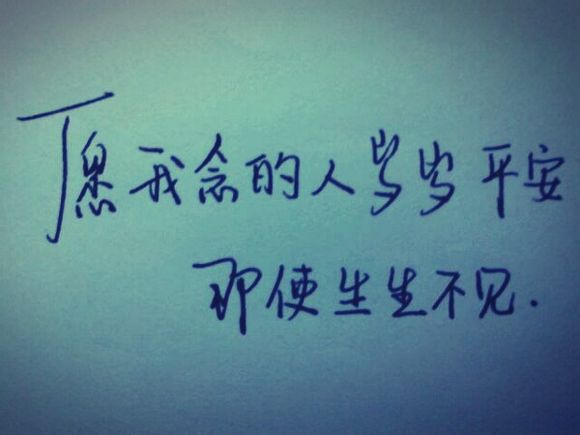 愿我念的人岁岁平安
即使生生不见.